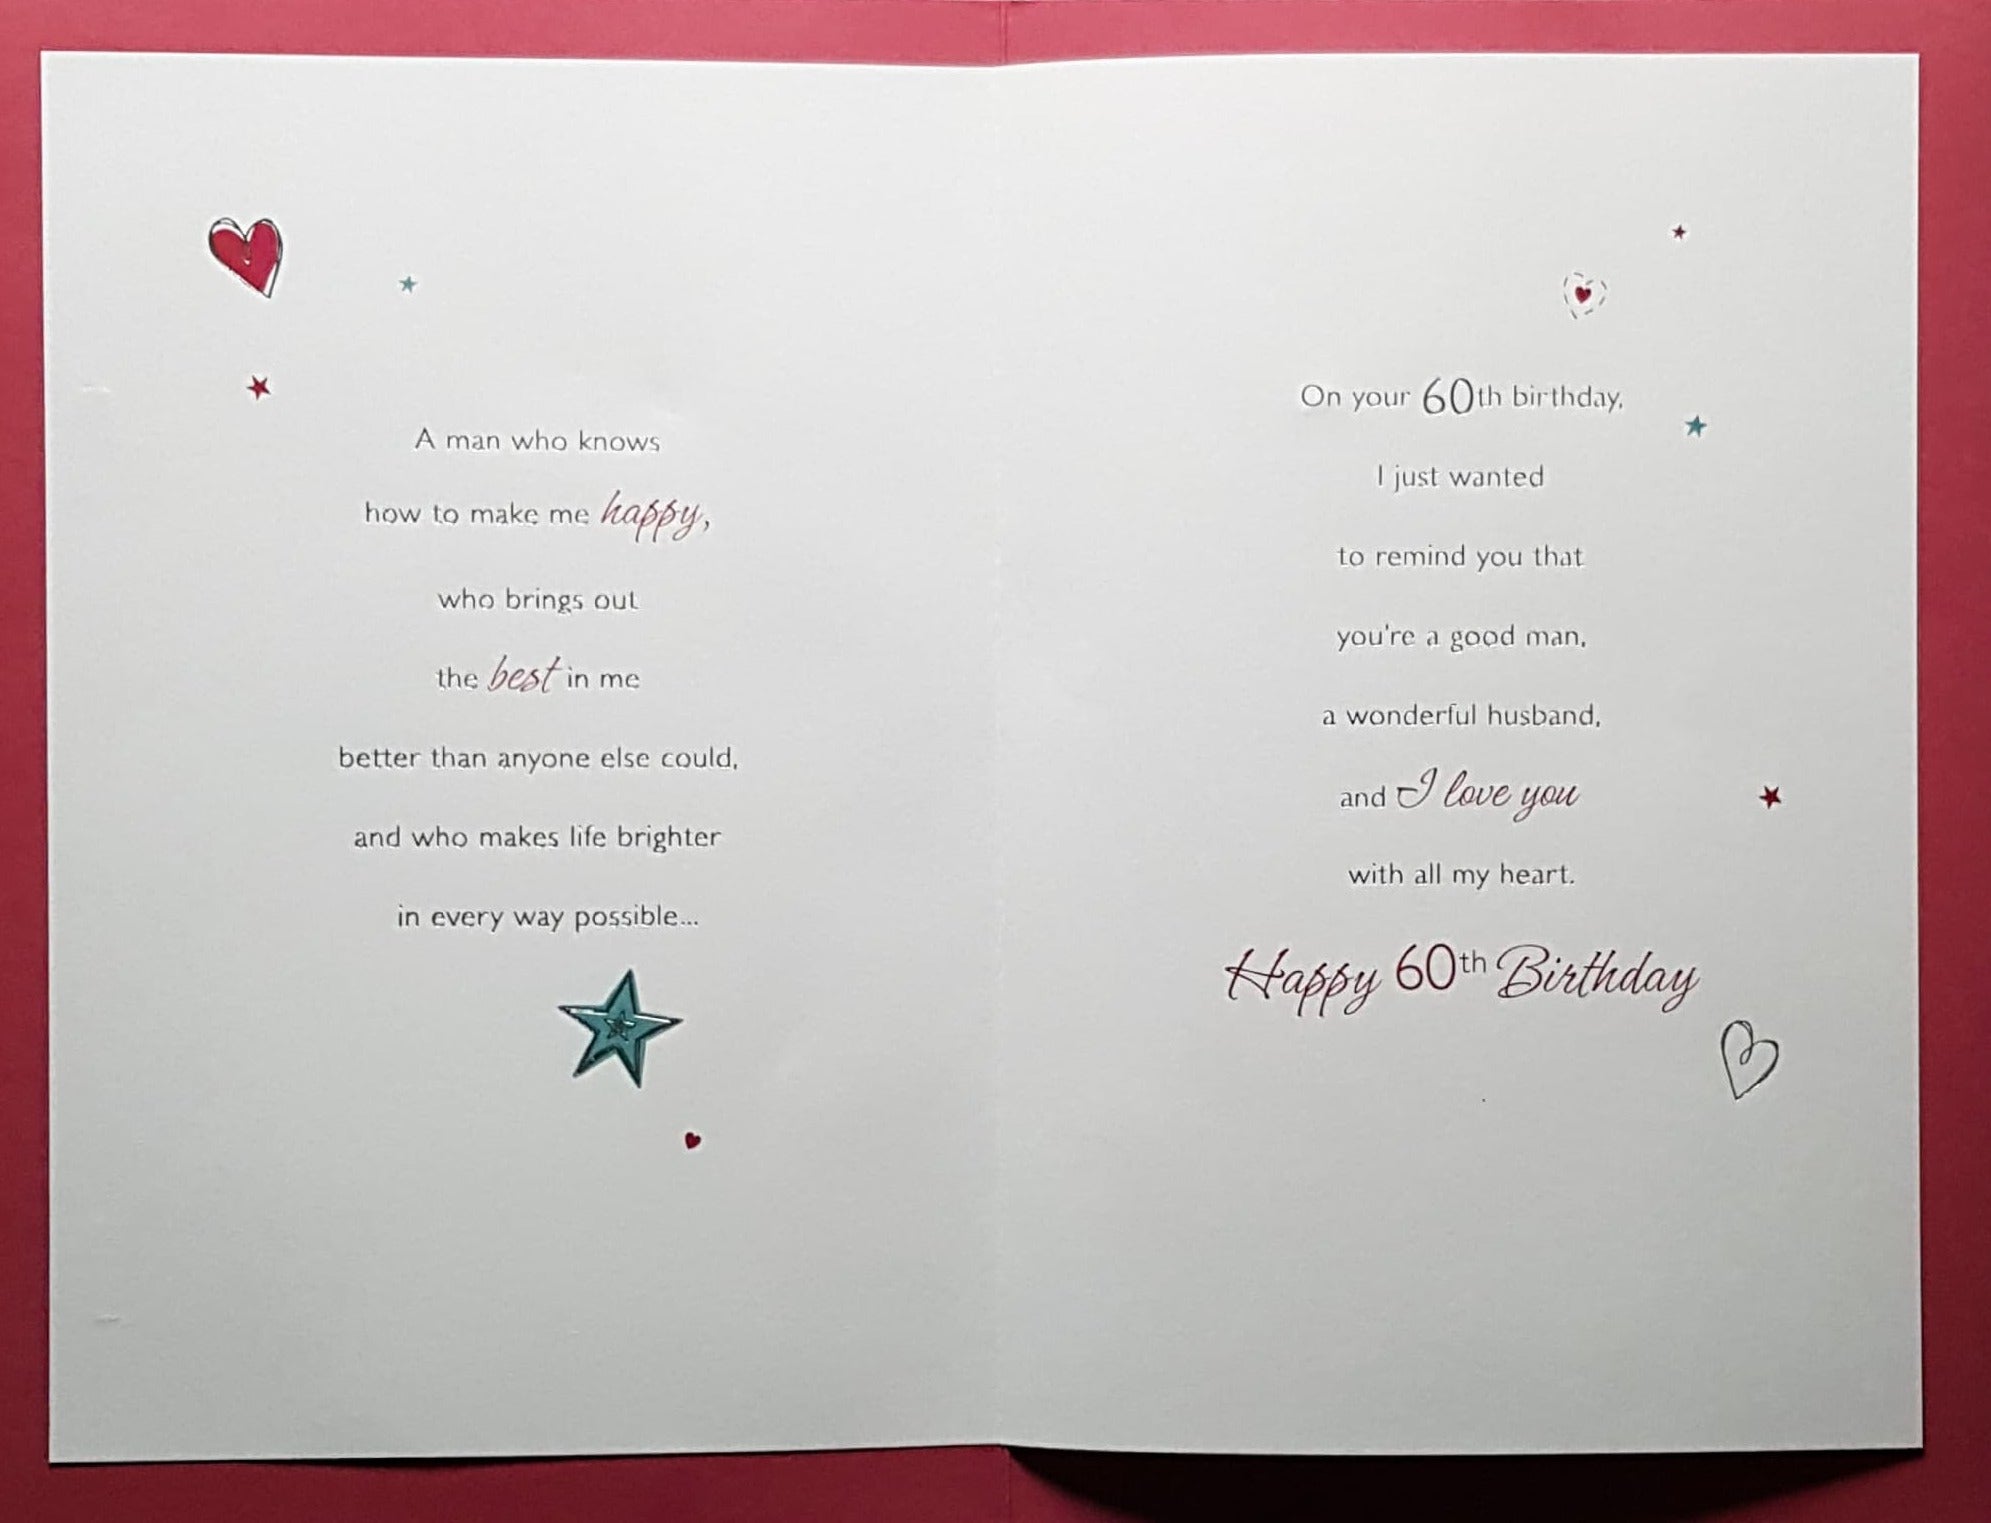 A man who knows
how to make me happy,
who brings out
the best in me
better than anyone else could,
and who makes life brighter
in every way possible...
On your 60th birthday,
I just wanted
to remind you that
you're a good man,
a wonderful husband,
and I love you
with all my heart.
Happy 60th Birthday